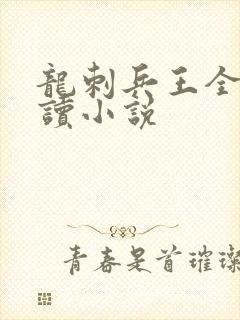 龍刺兵王全
讀小說
青春是首璀璨